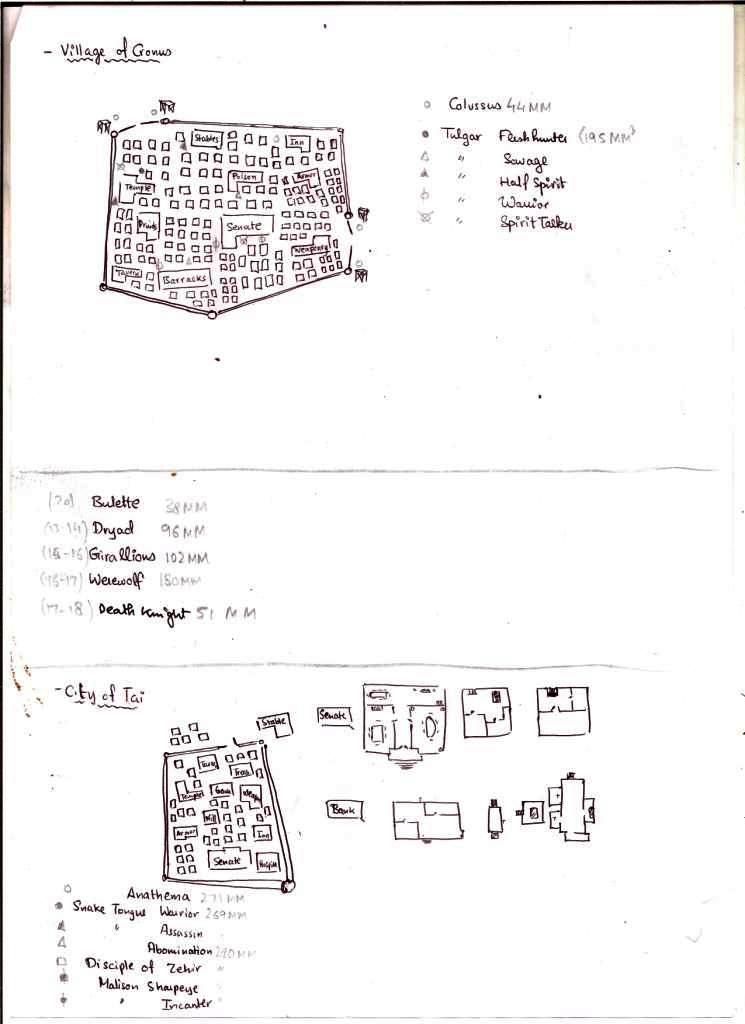 - Village of Cronus
Stables
Inn
Poison
Armor
Temple
Druids
Senate
Weaponry
Tavern
Barracks
Colussus 44 MM
Tulgar Flesh hunter (195 MM)
" Savage
" Half Spirit
" Warrior
" Spirit Talker
(20) Bulette 38 MM
Dryad 96 MM
(15-16) Girallions 102 MM
Werewolf 180 MM
(17-18) Death Knight 51 MM
- City of Tai
Stable
Senate
Temple
Armor
Inn
Senate
Bank
Anathema 271 MM
Snake Tongue Warrior 269 MM
" Assassin "
Abomination 270 MM
Disciple of Zehir "
Malison Sharpeye "
" Incanter "